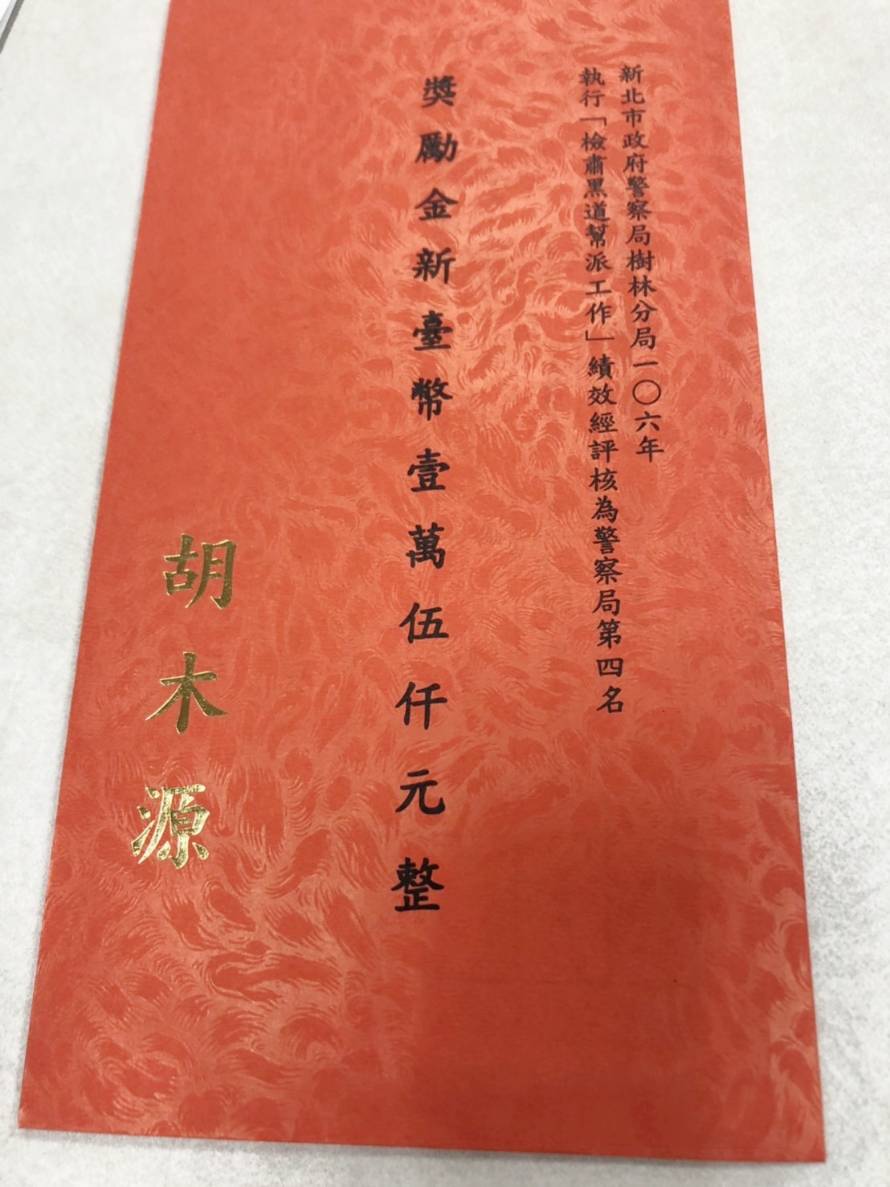 新北市政府警察局樹林分局一〇六年
執行「檢肅黑道幫派工作」績效經評核為警察局第四名
獎勵金新臺幣壹萬伍仟元整
胡木源